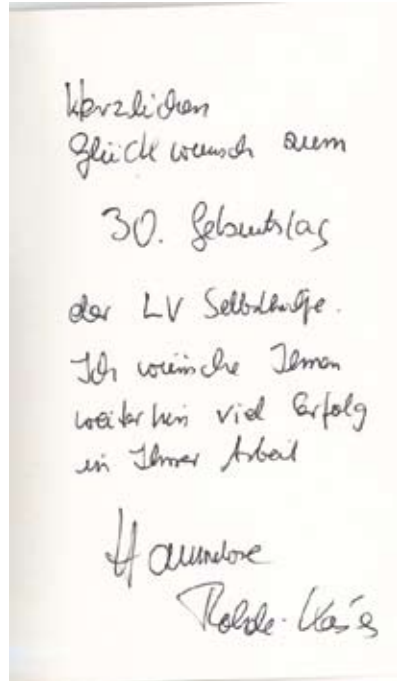 Herzlichen
Glückwunsch zum
30. Geburtstag
der LV Selbsthilfe.
Ich wünsche Ihnen
weiterhin viel Erfolg
in Ihrer Arbeit
Hannelore